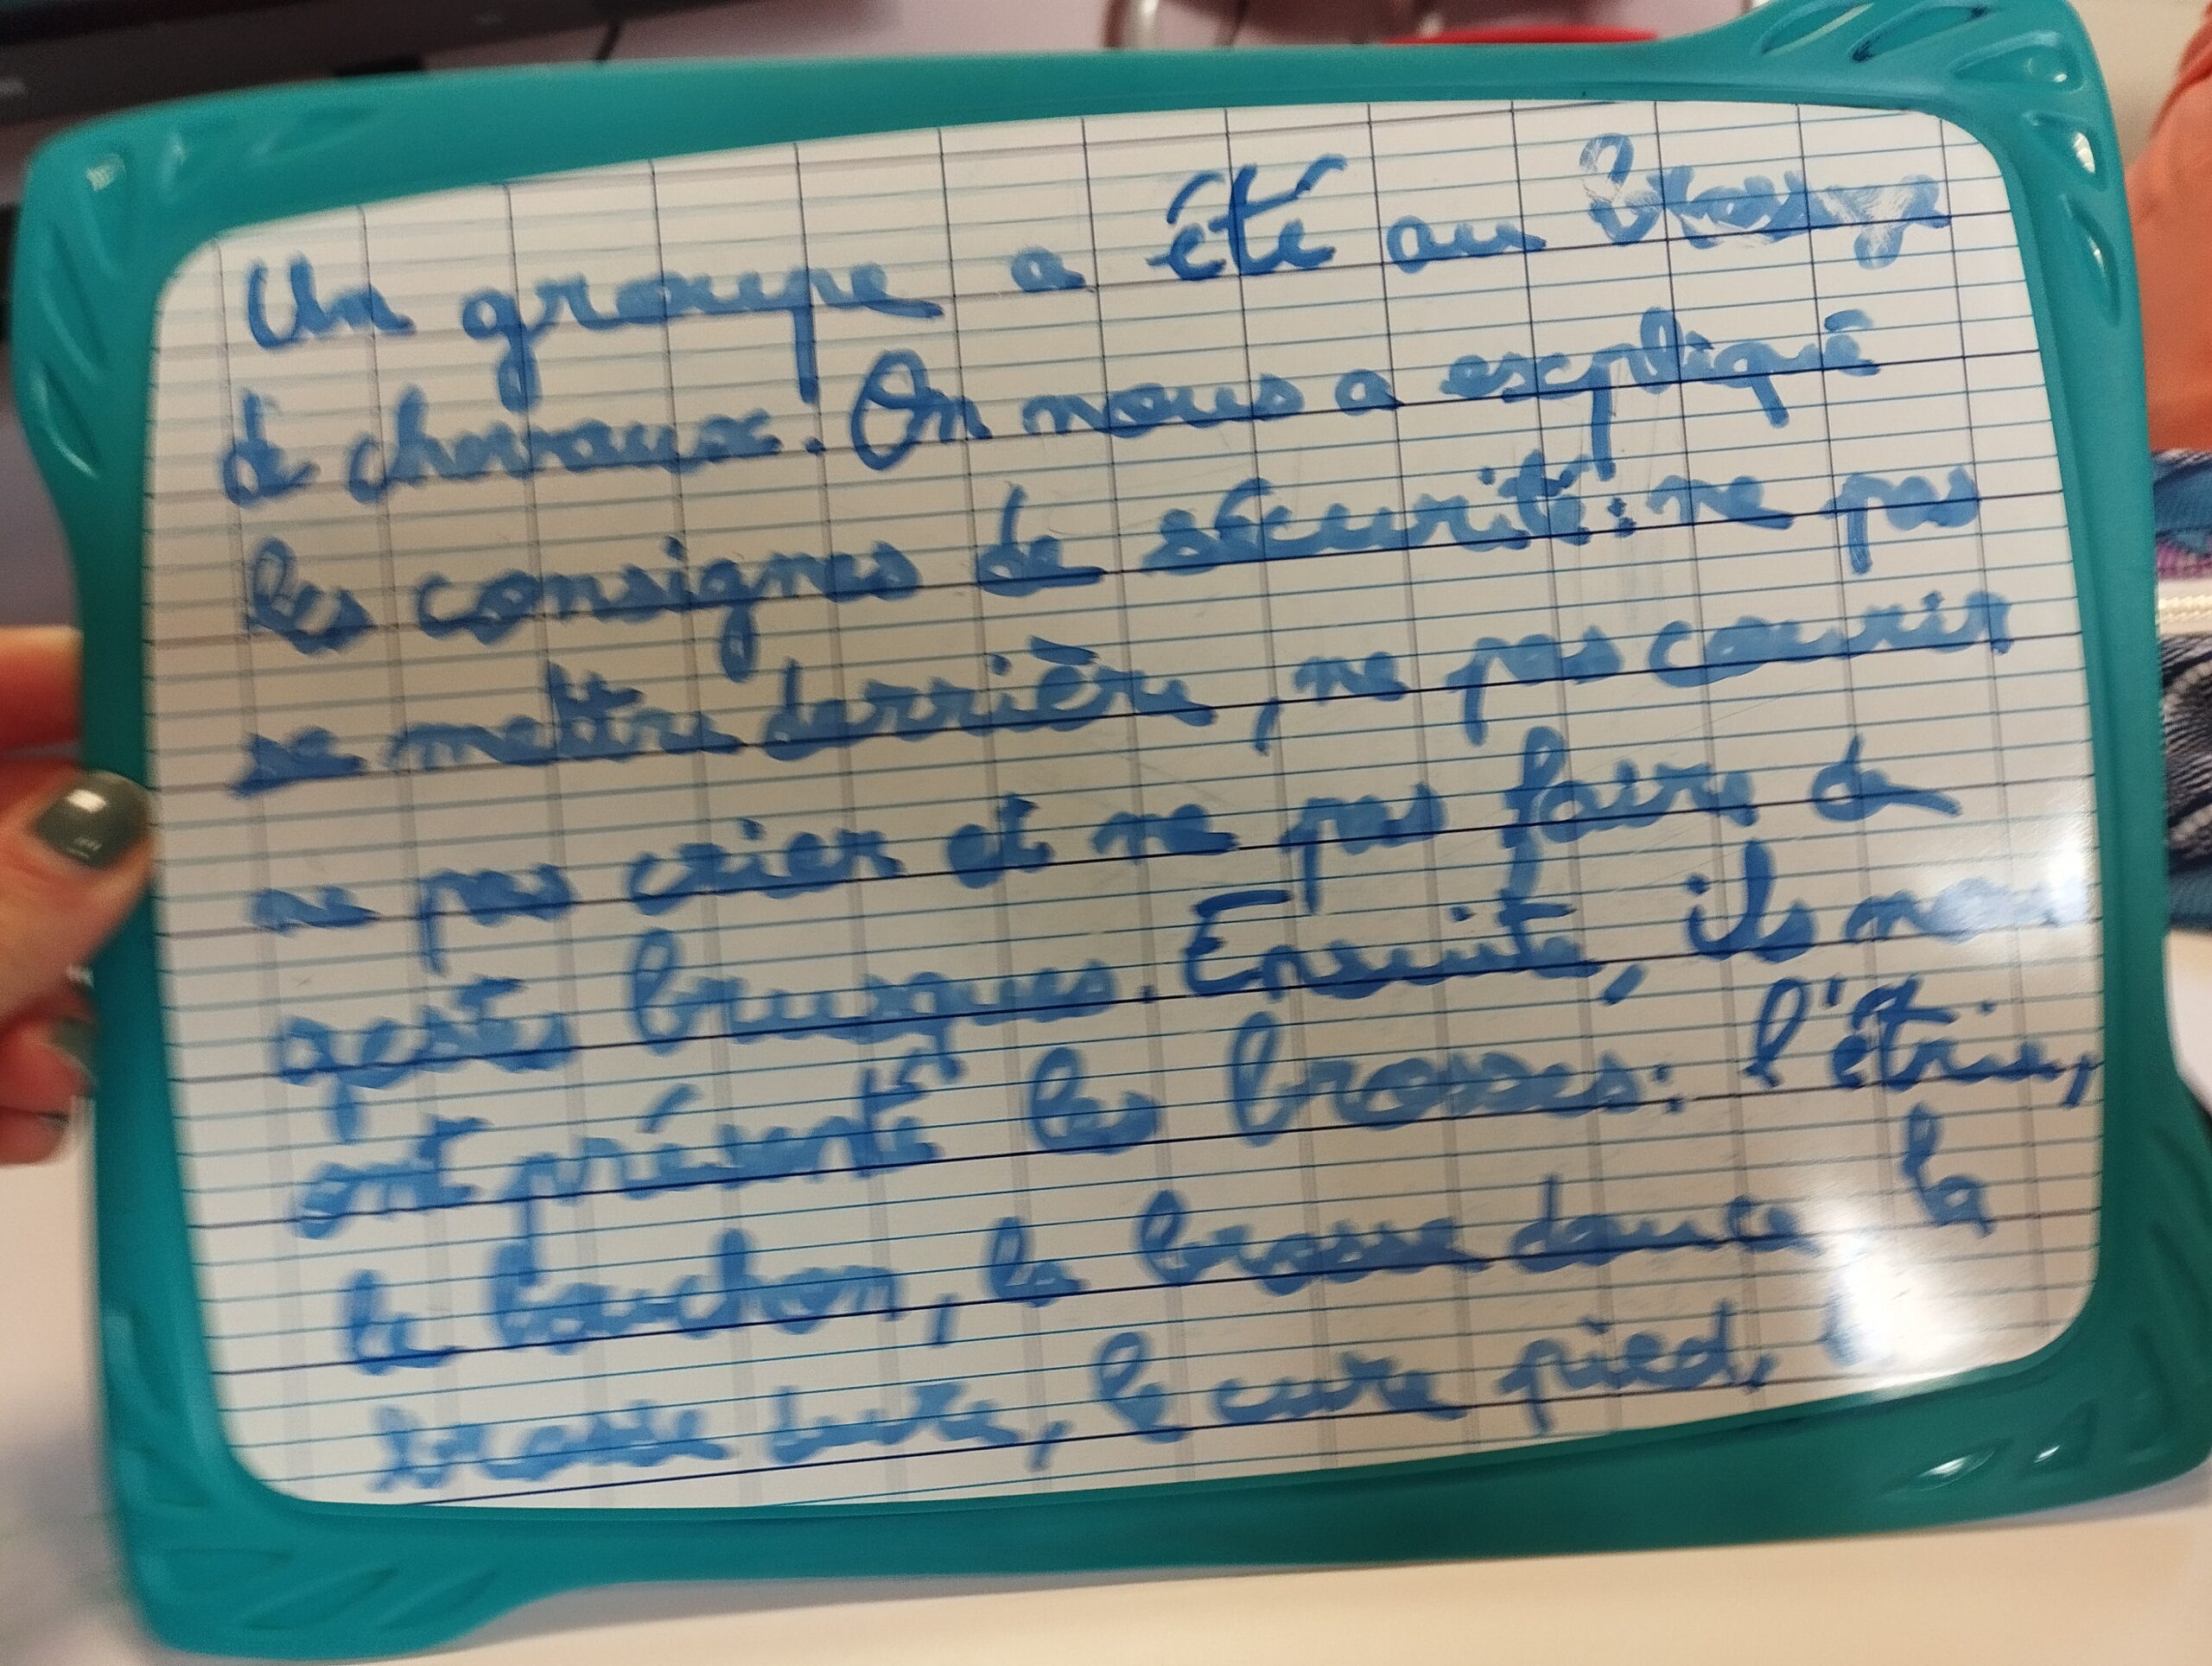 Un groupe a été au
de chevaux. On nous a expliqué
les consignes de sécurité: ne pas
se mettre derrière, ne pas courir
ne pas crier et ne pas faire de
gestes brusques. Ensuite, ils nous
ont présenté les brosses: l'étrie,
le bouchon, la brosse douce la
brosse dure, le cure pied,